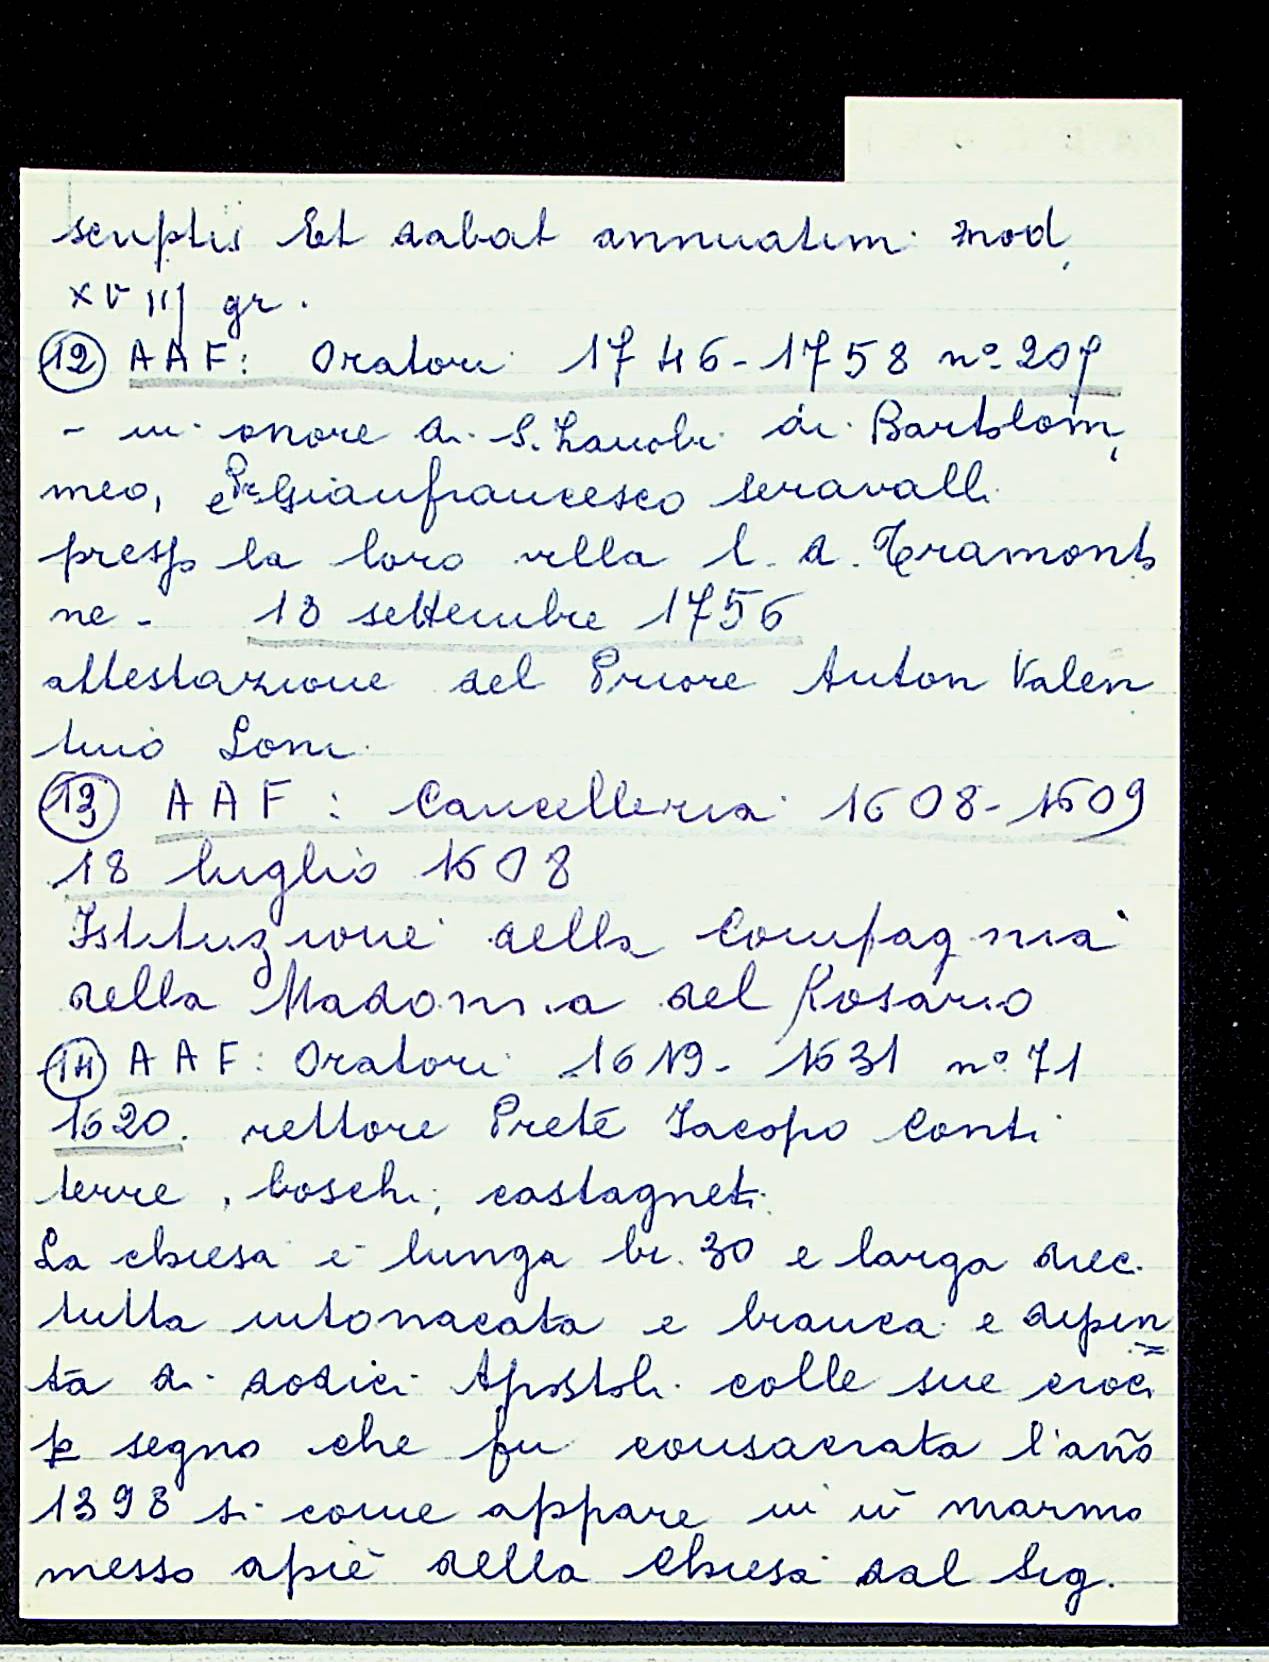 scriptis Et dabat annuatim mod,
XVIIJ gr.
(12) AAF: Oratori 1746-1758 nº 207
- in onore di S. Zanobi di Bartolom,
meo, e Pr Gianfrancesco Seravalli
presso la loro villa l. d. Tramonta
ne - 18 settembre 1756
attestazione del Priore Anton Valen
tino Loni
(13) AAF: Cancelleria 1608-1609
18 luglio 1608
Istituzione della Compagnia
della Madonna del Rosario
(14) AAF: Oratori 1619-1631 nº 71
1620. rettore Prete Iacopo Conti
terre, boschi, castagneti
La chiesa è lunga br. 30 e larga diec.
tutta intonacata e bianca e depin=
ta di dodici Apostoli colle sue croci
p segno che fu consacrata l'año
1398 si come appare in ũ marmo
messo apiè della Chiesa dal Sig.